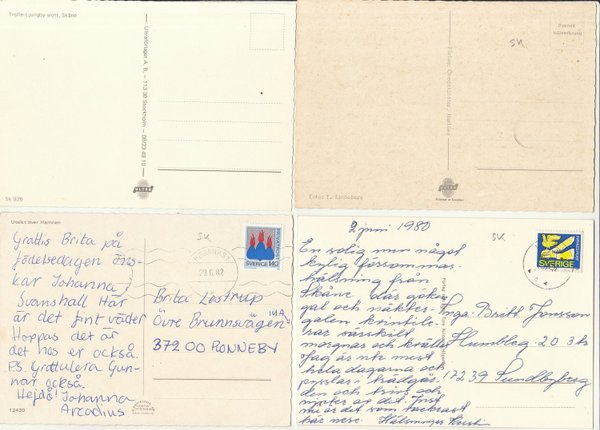 Trolle-Ljungby slott, Skåne
Ultraförlaget A. B. – 113 30 Stockholm – 08/23 48 10
ULTRA
Sk 826
SK
Svensk
ULTRA
Foto: T.
Utsikt över Hamnen
Grattis Brita på
födelsedagen öns-
kar Johanna i
Svanshall Här
är det fint väder
Hoppas det är
det hos er också.
P.S. Grattulera Gun-
nar också.
Hejdå! Johanna
Arcadius
12430
SK
29.6.82
SVERIGE 140
Brita Löstrup
Övre Brunnsvägen
372 00 RONNEBY
2 juni 1980
En solig men något
kylig försommar-
hälsning från
Skåne där göken
gal och näkter-
galen
särskilt
morgnar och kvällar
Jag är ute mest
hela dagarna och
pysslar i trädgår-
den och
njuter av det. Just
nu är det som vackrast
här nere. Hälsningar
SK
SVERIGE
Inga-Britt Jonsson
Humbleg. 20 3 tr
172 39 Sundbyberg